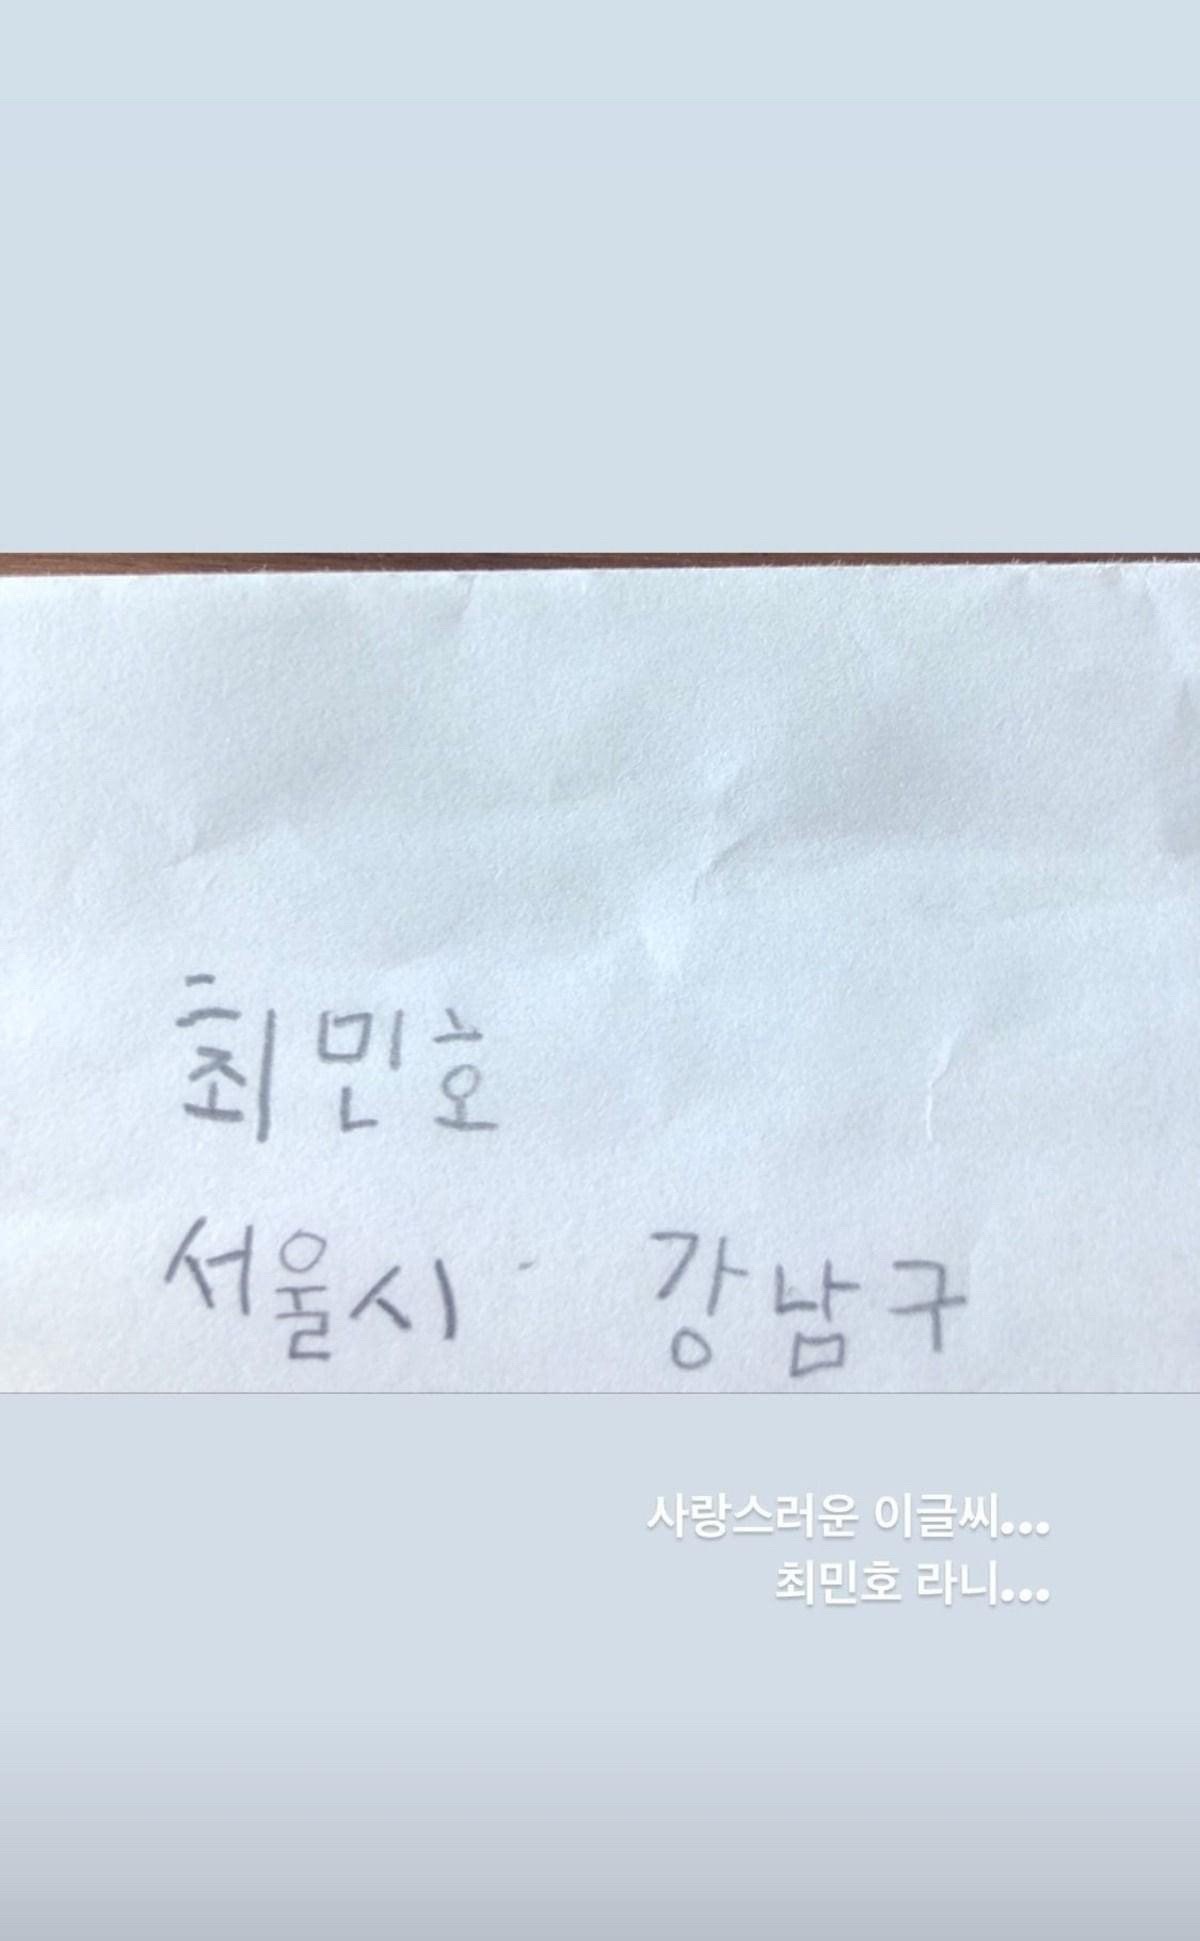 최민호
서울시 강남구
사랑스러운 이글씨...
최민호 라니...